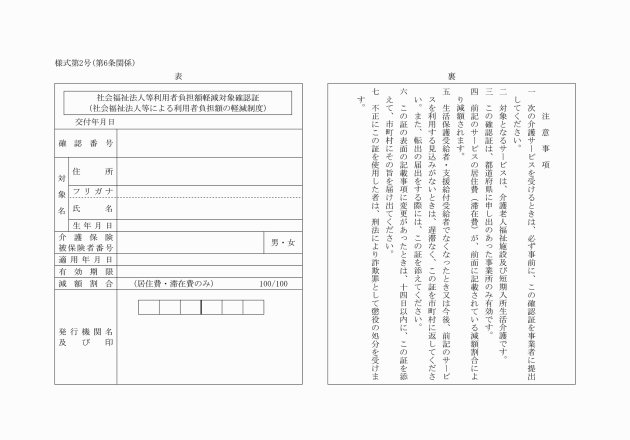 様式第2号(第6条関係)
表
社会福祉法人等利用者負担額軽減対象確認証
(社会福祉法人等による利用者負担額の軽減制度)
交付年月日
確認番号
対象名
住所
フリガナ
氏名
生年月日
介護保険
被保険者番号
男・女
適用年月日
有効期限
減額割合
(居住費・滞在費のみ) 100/100
発行機関名
及び印
裏
注意事項
一 次の介護サービスを受けるときは、必ず事前に、この確認証を事業者に提出
してください。
二 対象となるサービスは、介護老人福祉施設及び短期入所生活介護です。
三 この確認証は、都道府県に申し出のあった事業所のみ有効です。
四 前記のサービスの居住費(滞在費)が、前面に記載されている減額割合によ
り減額されます。
五 生活保護受給者・支援給付受給者でなくなったとき又は今後、前記のサービ
スを利用する見込みがないときは、遅滞なく、この証を市町村に返してくださ
い。また、転出の届出をする際には、この証を添えてください。
六 この証の表面の記載事項に変更があったときは、十四日以内に、この証を添
えて、市町村にその旨を届け出てください。
七 不正にこの証を使用した者は、刑法により詐欺罪として懲役の処分を受けま
す。